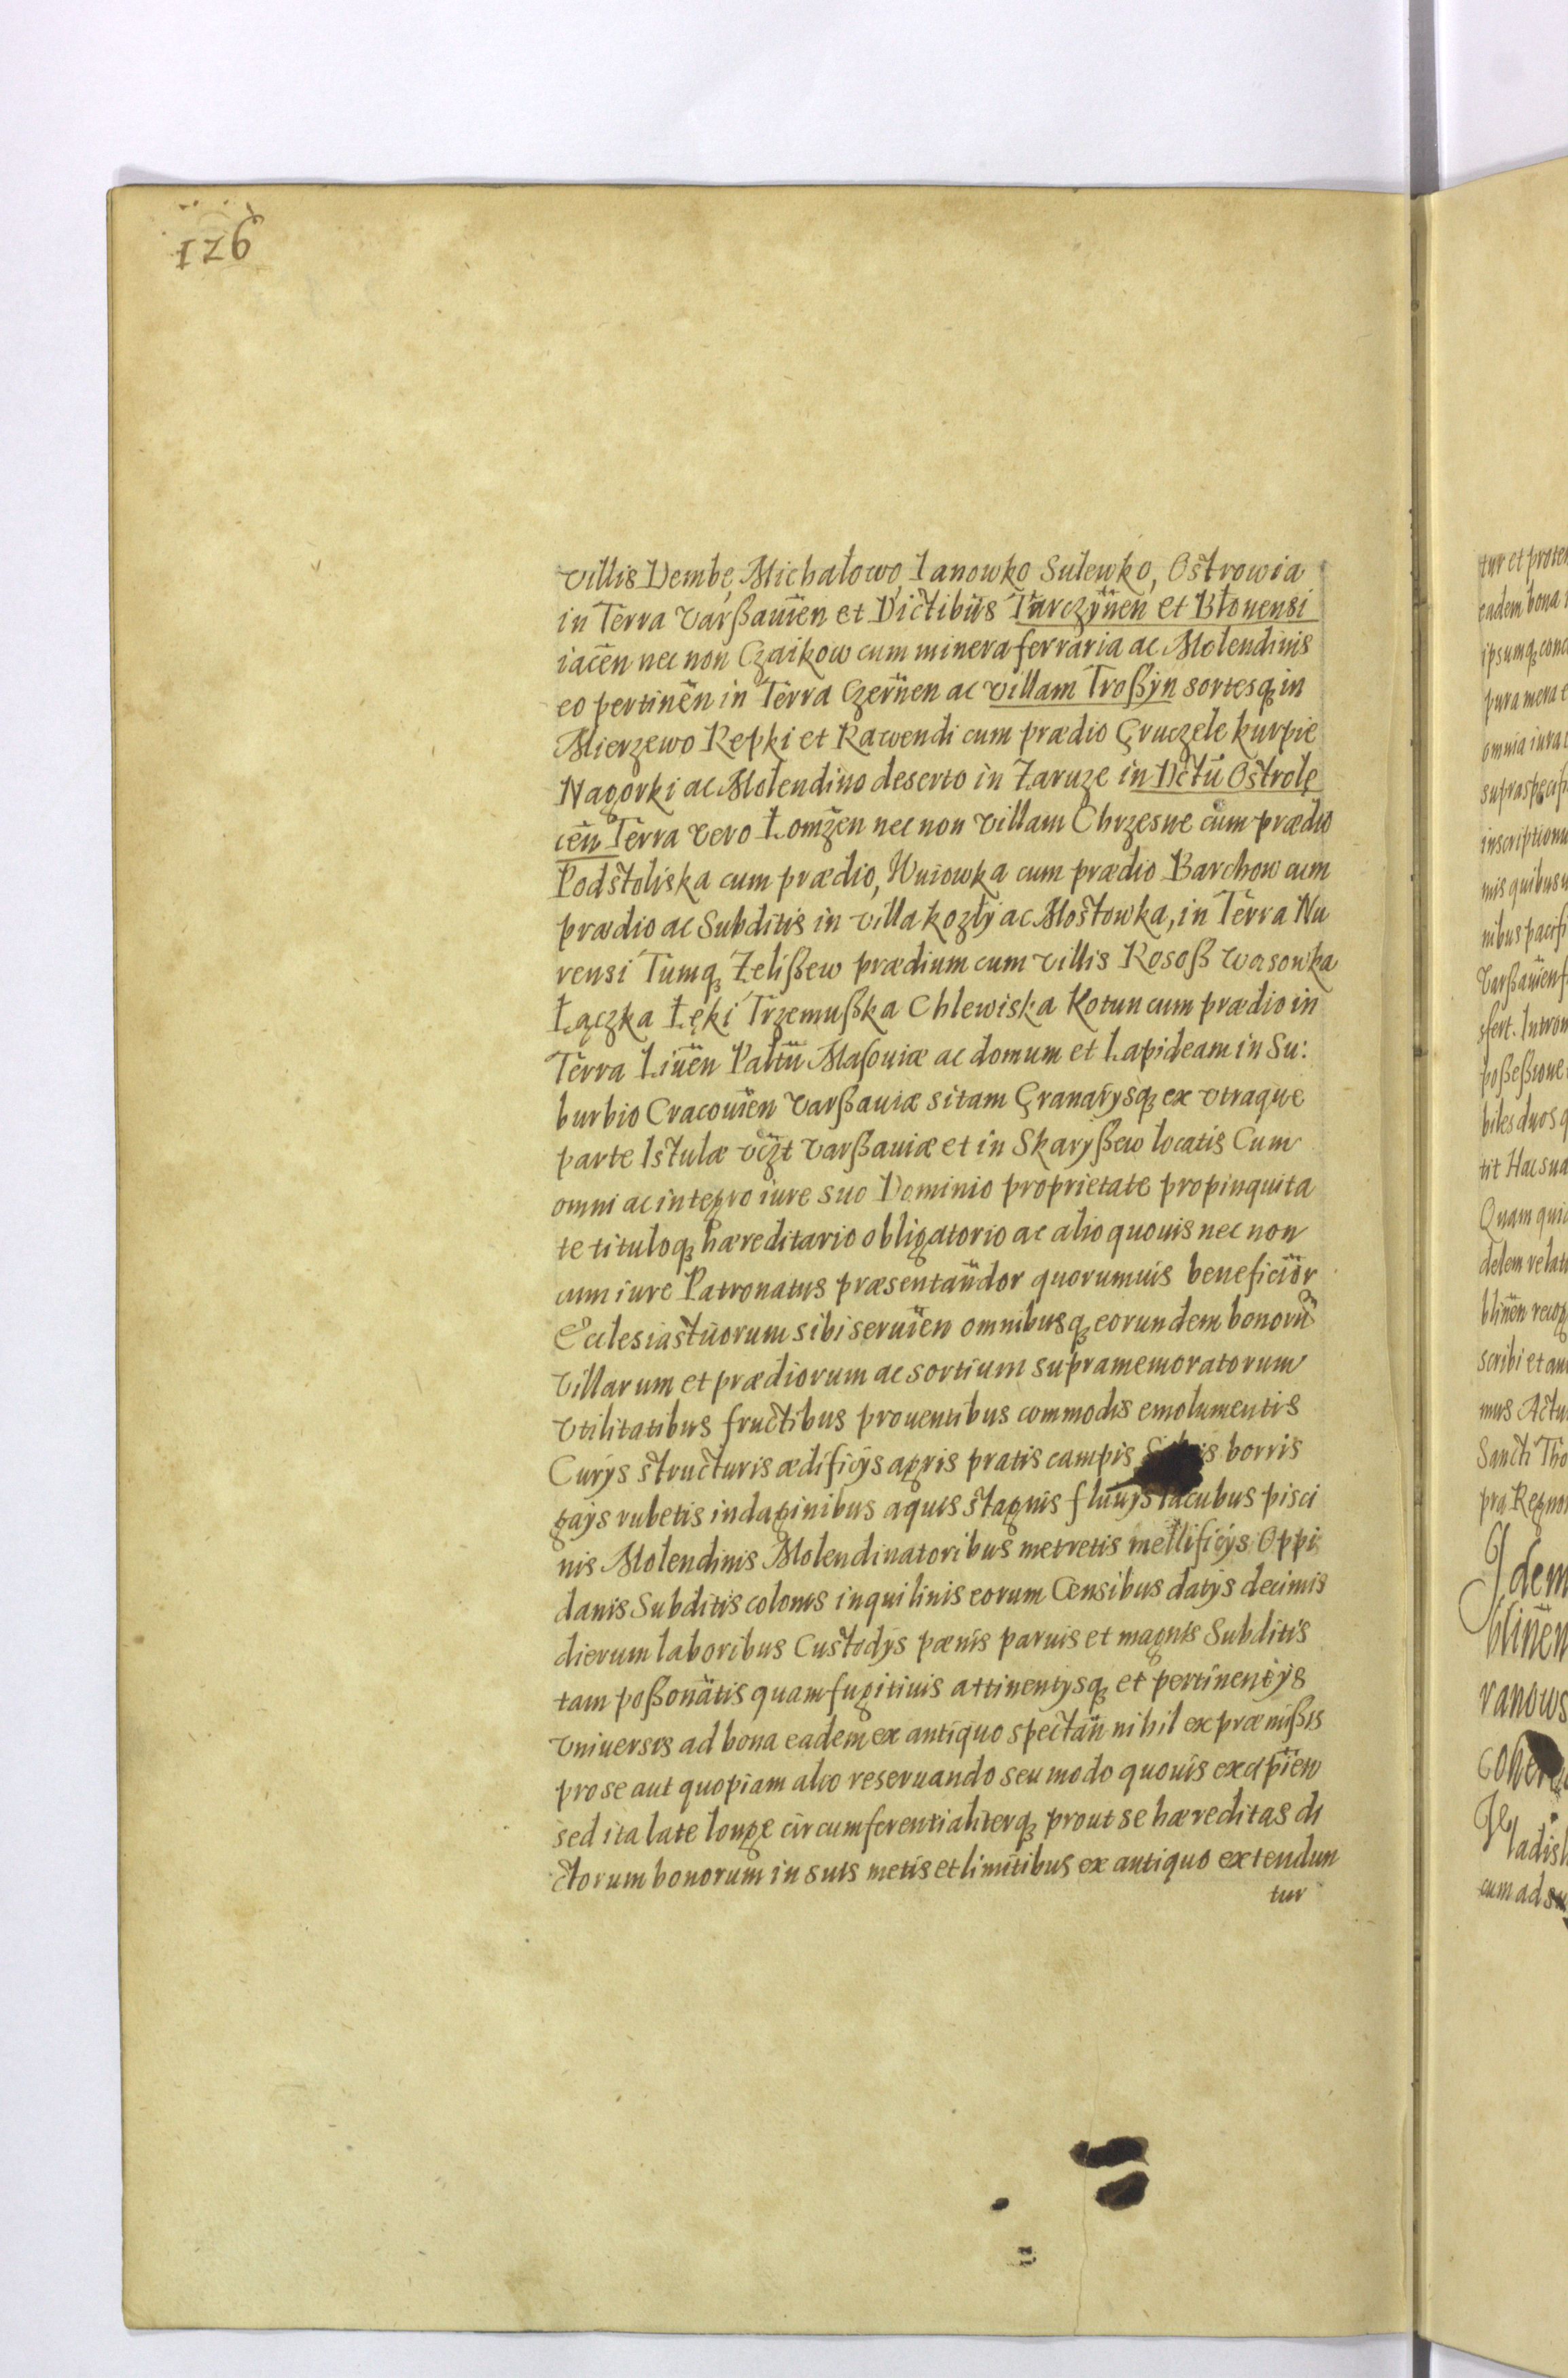 126
villis Dembe, Michałowo, Ianowko Sulewko, Ostrowia
in Terra Varßauien et Dictibus Tarczynen et Błonensi
iacen nec non Czaikow cum minera ferraria ac Molendinis
eo pertinen in Terra Czernen ac villam Troßyn sortesq in
Mierzewo Repki et Rawendi cum prædio Gruczele kurpie
Nagorki ac Molendino deserto in Żaruze in Dctu Ostrolę
cen Terra vero Łomzen nec non villam Chrzesne cum prædio
Podstoliska cum prædio, Wuiowka cum prædio Barchow cum
prædio ac Subditis in villa kozły ac Mostowka, in Terra Nu
rensi Tumq Żelißew prædium cum villis Rosoß Wasowka
Łączka Łęki Trzemußka Chlewiska Kotun cum prædio in
Terra Liuen Paltu Masouiæ ac domum et Lapideam in Su:
burbio Cracouien Varßauiæ sitam Granarysq ex vtraque
parte Istulæ vczt Varßauiæ et in Skaryßew locatis Cum
omni ac integro iure suo Dominio proprietate propinquita
te tituloq hæreditario obligatorio ac alio quouis nec non
cum iure Patronatus præsentandor quorumuis beneficior
Ecclesiasticorum sibi seruien omnibusq eorundem bonoru
villarum et prædiorum ac sortium supramemoratorum
vtilitatibus fructibus prouentibus commodis emolumentis
Curys structuris ædificys agris pratis campis borris
gays rubetis indaginibus aquis stagnis fluuys lacubus pisci
nis Molendinis Molendinatoribus metretis mellificys Oppi
danis Subditis colonis inquilinis eorum Censibus datys decimis
dierum laboribus Custodys pænis paruis et magnis Subditis
tam poßonatis quam fugitiuis attinentysq et pertinentys
vniuersis ad bona eadem ex antiquo spectan nihil ex præmißis
pro se aut quopiam alio reseruando seu modo quouis excipien
sed ita late longe circumferentialiterq prout se hæreditas di
ctorum bonorum in suis metis et limitibus ex antiquo extendun
tur